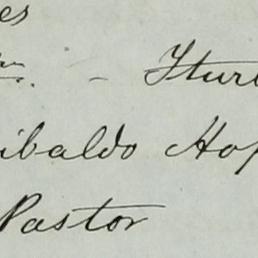 es
– Itur
ibaldo Hop
Pastor